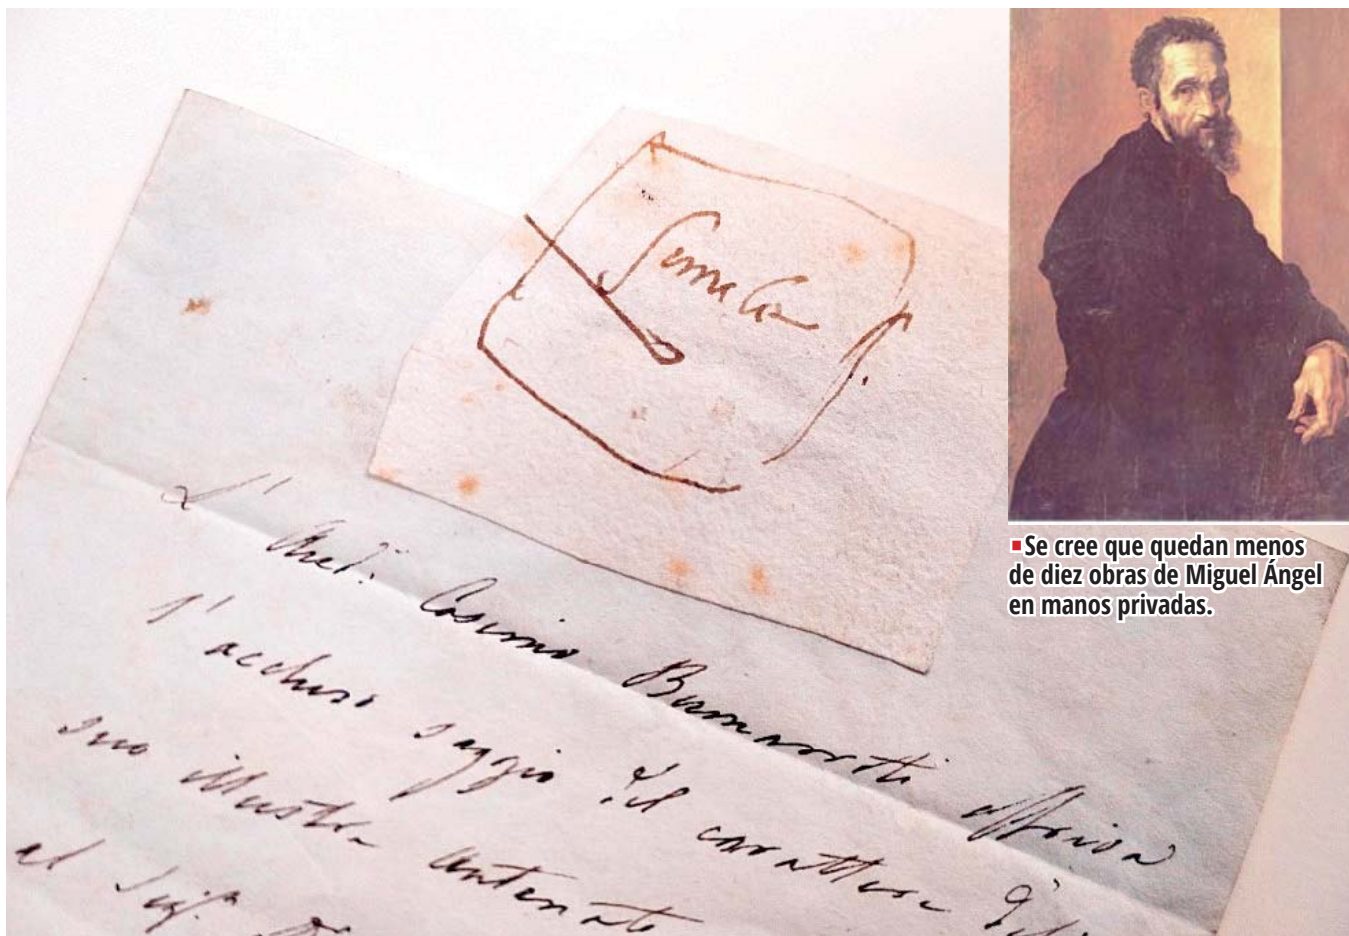 simile
L' Cosimo Buonarroti offriva
l'accluso saggio del carattere del
suo illustre antenato
al Sig.r
Se cree que quedan menos
de diez obras de Miguel Ángel
en manos privadas.